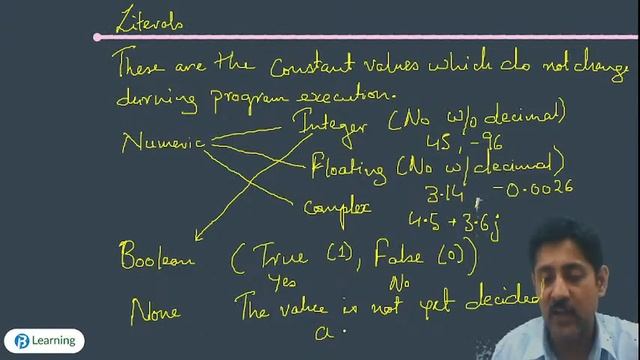 Literals
These are the constant values which do not change
durning program execution.
Numeric
Integer (No w/o decimal)
45, -96
Floating (No w/decimal)
3.14, -0.0026
Complex
4.5 + 3.6j
Boolean (True (1), False (0))
Yes No
None The value is not yet decided
a.
B Learning